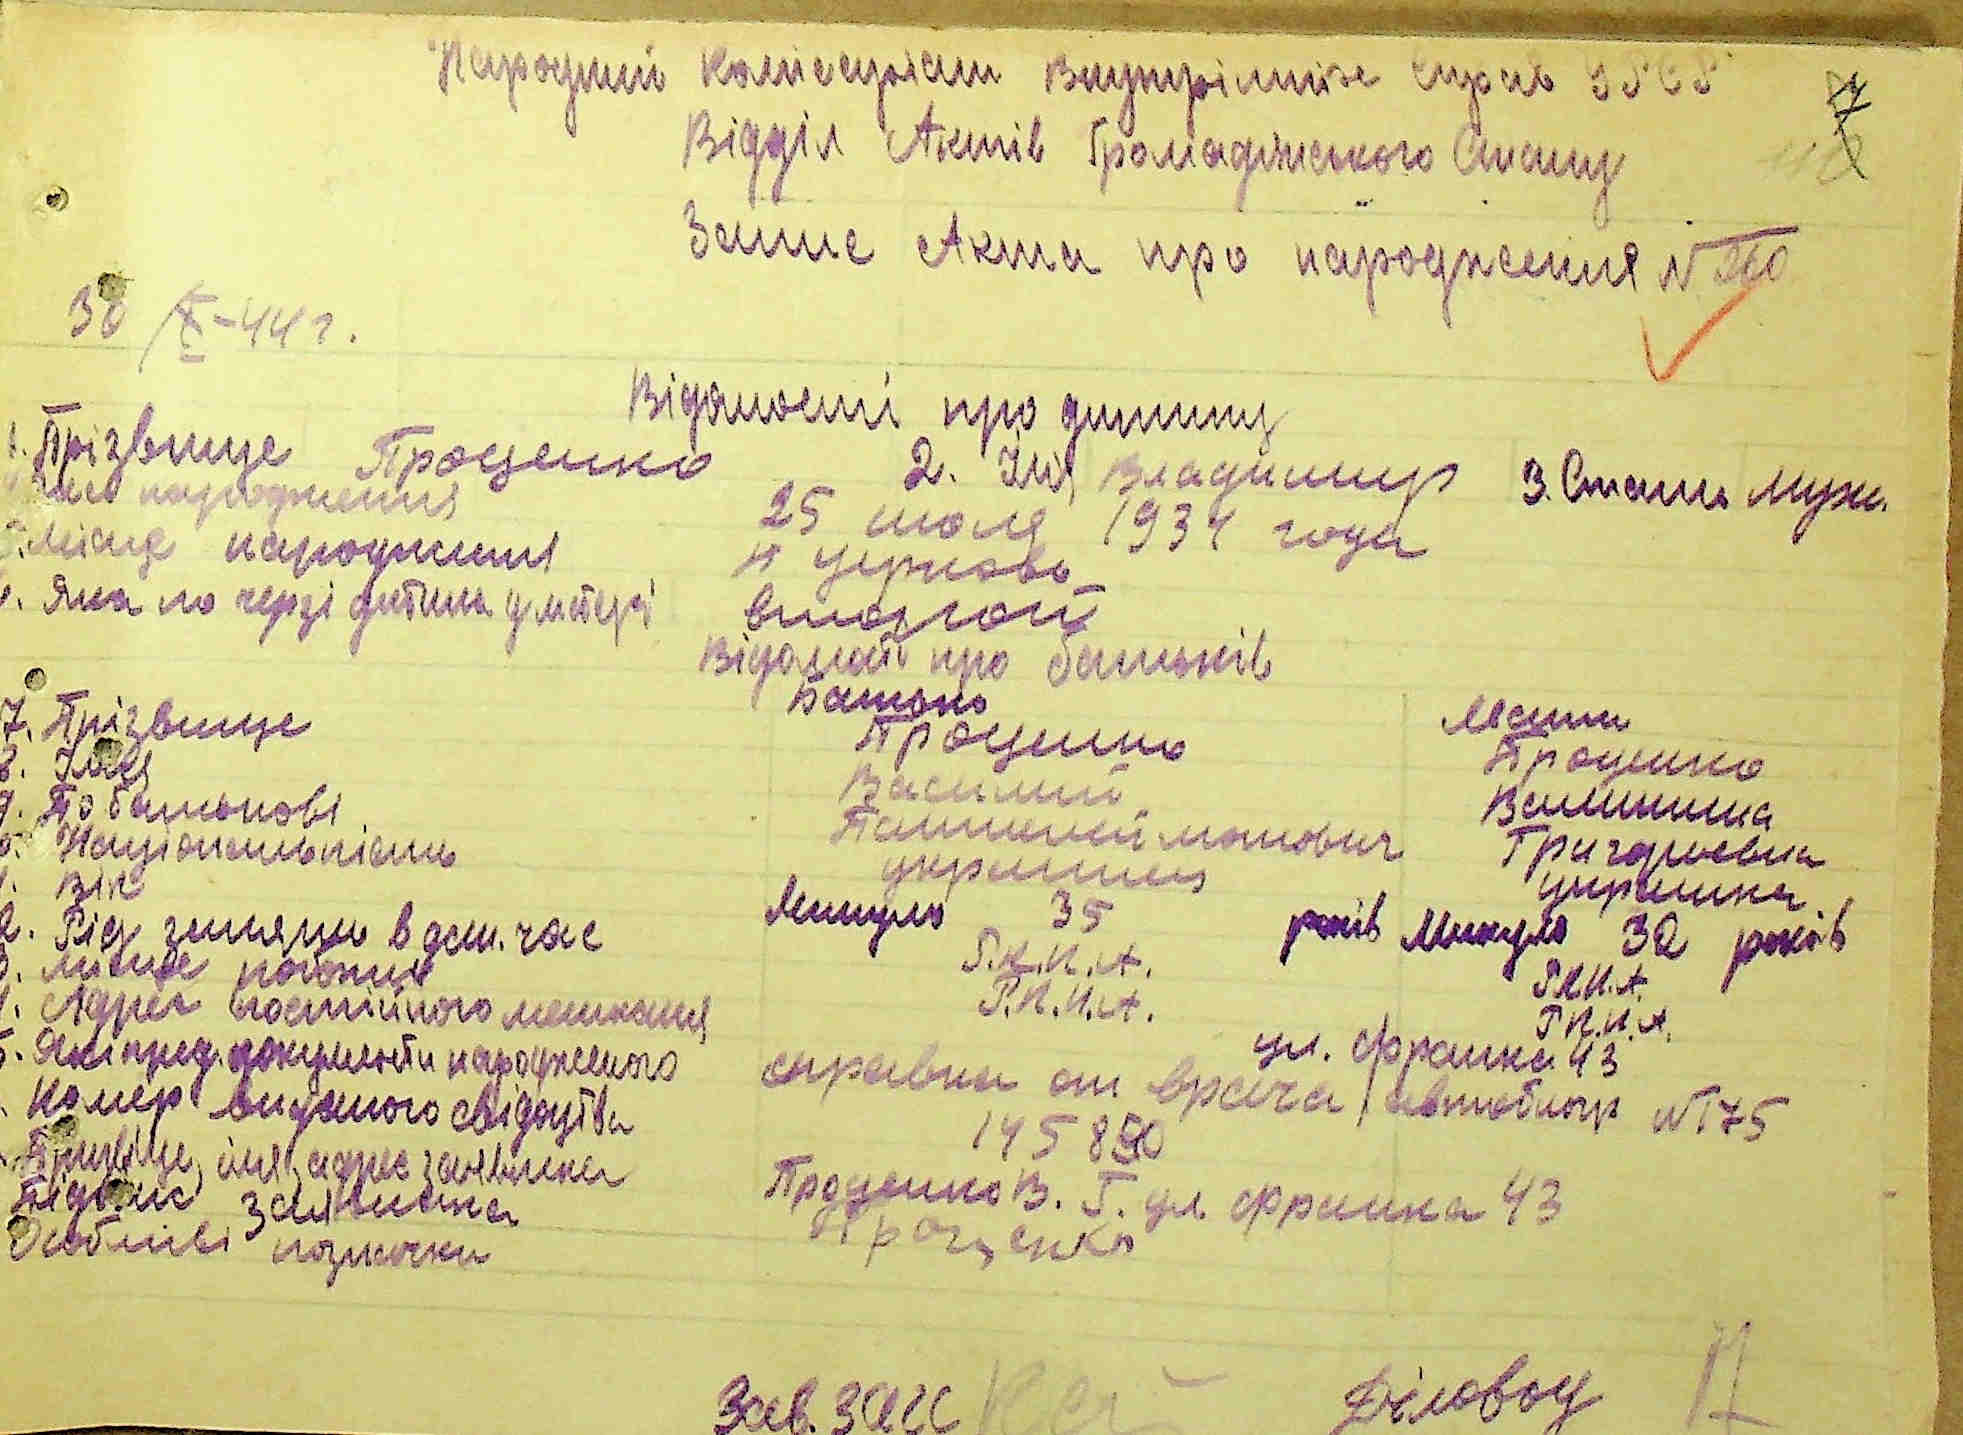 Народний Комісаріат Внутрішніх Справ УРСР
Відділ Актів Громадянського Стану
Запис Акта про народження № 260
30/X-44 г.
Відомості про дитину
1. Прізвище Проценко 2. Імя Владимир 3. Стать муж.
Час народження 25 июля 1934 года
5. Місце народження
6. Яка по черзі дитина у матері второй
Відомості про батьків
Батько Мати
7. Прізвище Проценко Проценко
8. Імя Василий Валинтина
9. По батькові Пантелеймонович Григорьевна
Національність украинец украинка
Вік Минуло 35 років Минуло 32 років
Рід занять в дан. час Р.К.К.А. Р.К.К.А.
Місце роботи Р.К.К.А. Р.К.К.А.
Адрес постійного мешкання ул. Франка 43
Які пред. документи народженого справка от врача автобат № 175
Номер виданого свідоцтва 145850
Призвіще, імя, адрес заявника Проценко В. Г. ул. Франка 43
Підпис заявника Проценко
Особливі позначки
Зав. ЗАГС Діловод